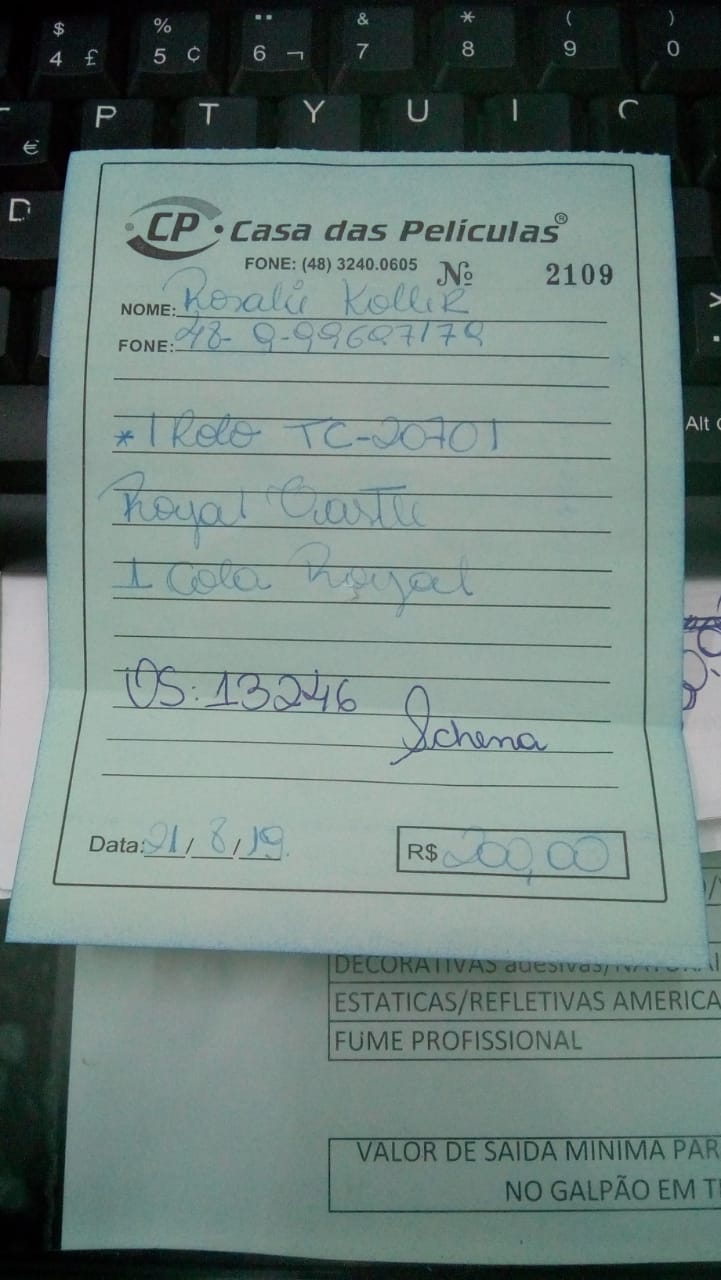 $ % ¨ & * ( )
4 £ 5 ¢ 6 ¬ 7 8 9 0
P T Y U I
€
D
CP · Casa das Películas®
FONE: (48) 3240.0605 Nº 2109
NOME: Rosalie Koller
FONE: 48- 9-99697179
* 1 Rolo TC-20701
Royal Castle
1 Cola Royal
OS: 13246
Schena
Data: 21/8/19. R$ 200,00
Alt
DECORATIVAS adesivas/
ESTATICAS/REFLETIVAS AMERICA
FUME PROFISSIONAL
VALOR DE SAIDA MINIMA PAR
NO GALPÃO EM T